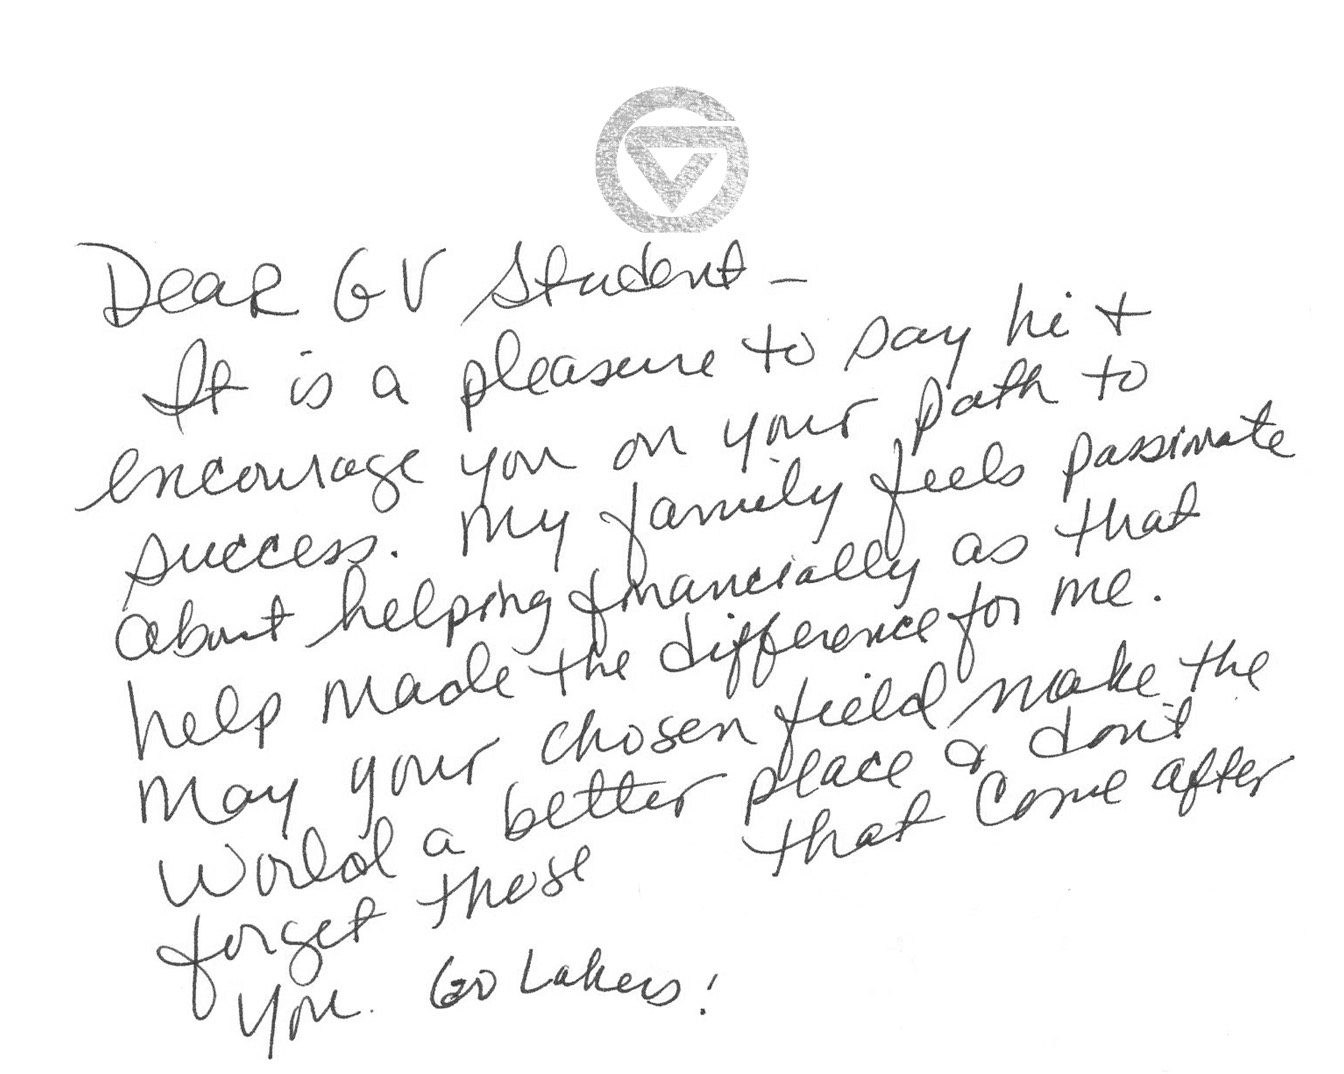 Dear GV Student -
It is a pleasure to say hi +
encourage you on your path to
success. My family feels passinate
about helping financially as that
help made the difference for me.
May your chosen field make the
world a better place & don't
forget those that come after
you. Go Lakers!